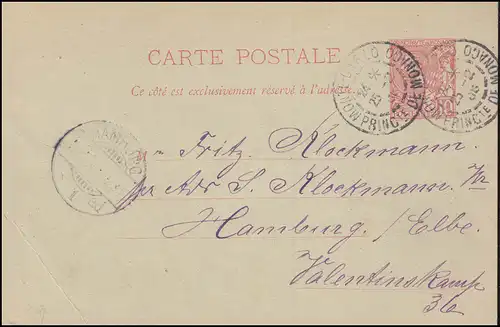 CARTE POSTALE
Ce côté est exclusivement réservé à l'adresse
MONTE-CARLO
PRINCTE DE MONACO
HAMBURG
Fritz Klockmann.
per Adr S. Klockmann. Jr
Hamburg / Elbe.
Valentinskamp
36